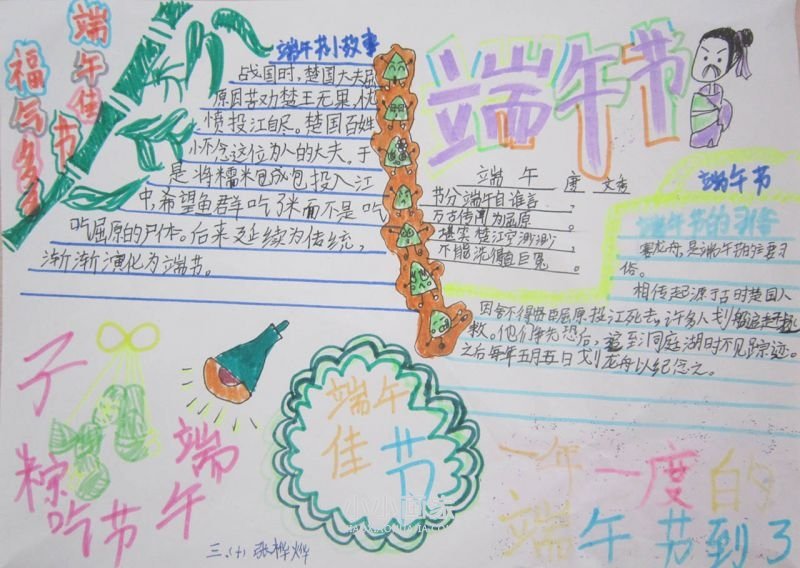 端午佳节
福气多多
端午节小故事
战国时,楚国大夫屈
原因苦劝楚王无果,忧
愤投江自尽。楚国百姓
小不念这位为人的大夫。于
是将糯米包成包投入江
中希望鱼群吃了米而不是吃
吃屈原的尸体。后来延续为传统,
渐渐演化为端节。
端午节
端 午 唐 文秀
节分端午自谁言,
万古传闻为屈原。
堪笑楚江空渺渺,
不能洗得直臣冤。
端午节
端午节的习俗
赛龙舟,是端午节的主要习
俗。
相传起源于古时楚国人
因舍不得贤臣屈原投江死去,许多人划船追赶拯
救。他们争先恐后,追至洞庭湖时不见踪迹。
之后每年五月五日划龙舟以纪念之。
端午节吃粽子
端午
佳节
一年一度的
端午节到了
三.(十)张桦烨
小小画家
XIAOXIAOHUAJIA.COM